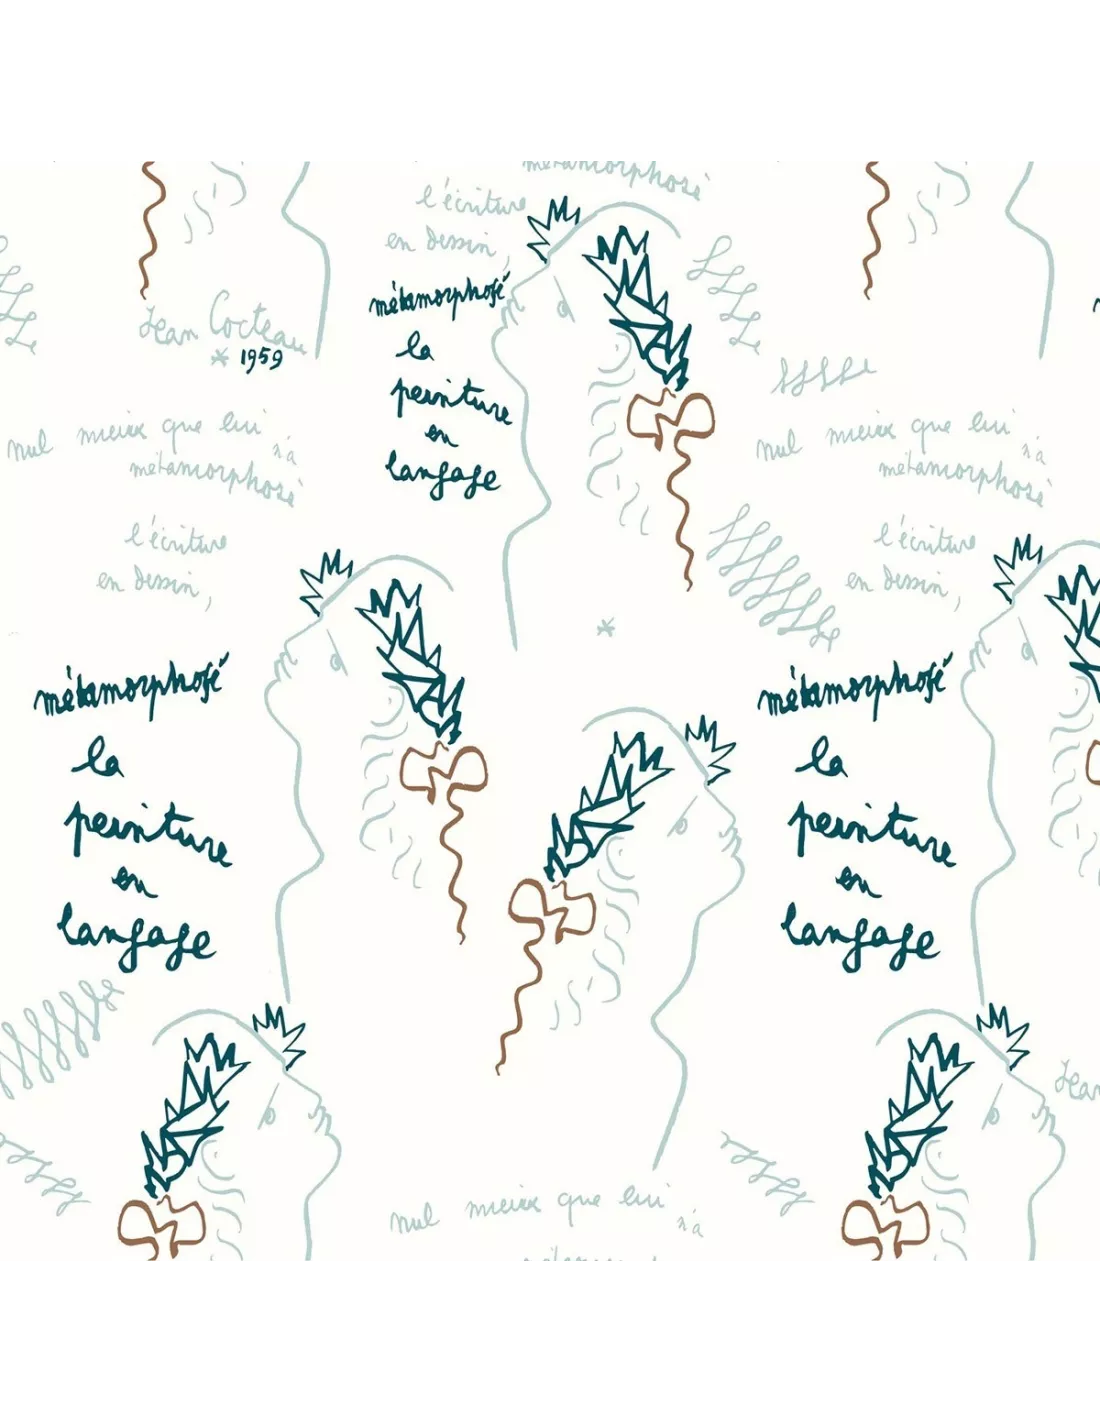 métamorphosé
l'écriture
en dessin,
métamorphosé
la
peinture
en
langage
Jean Cocteau
* 1959
nul mieux que lui
n'a
métamorphosé
l'écriture
en dessin,
nul mieux que lui
n'a
métamorphosé
l'écriture
en dessin,
*
métamorphosé
la
peinture
en
langage
métamorphosé
la
peinture
en
langage
Jean
nul mieux que lui
n'a